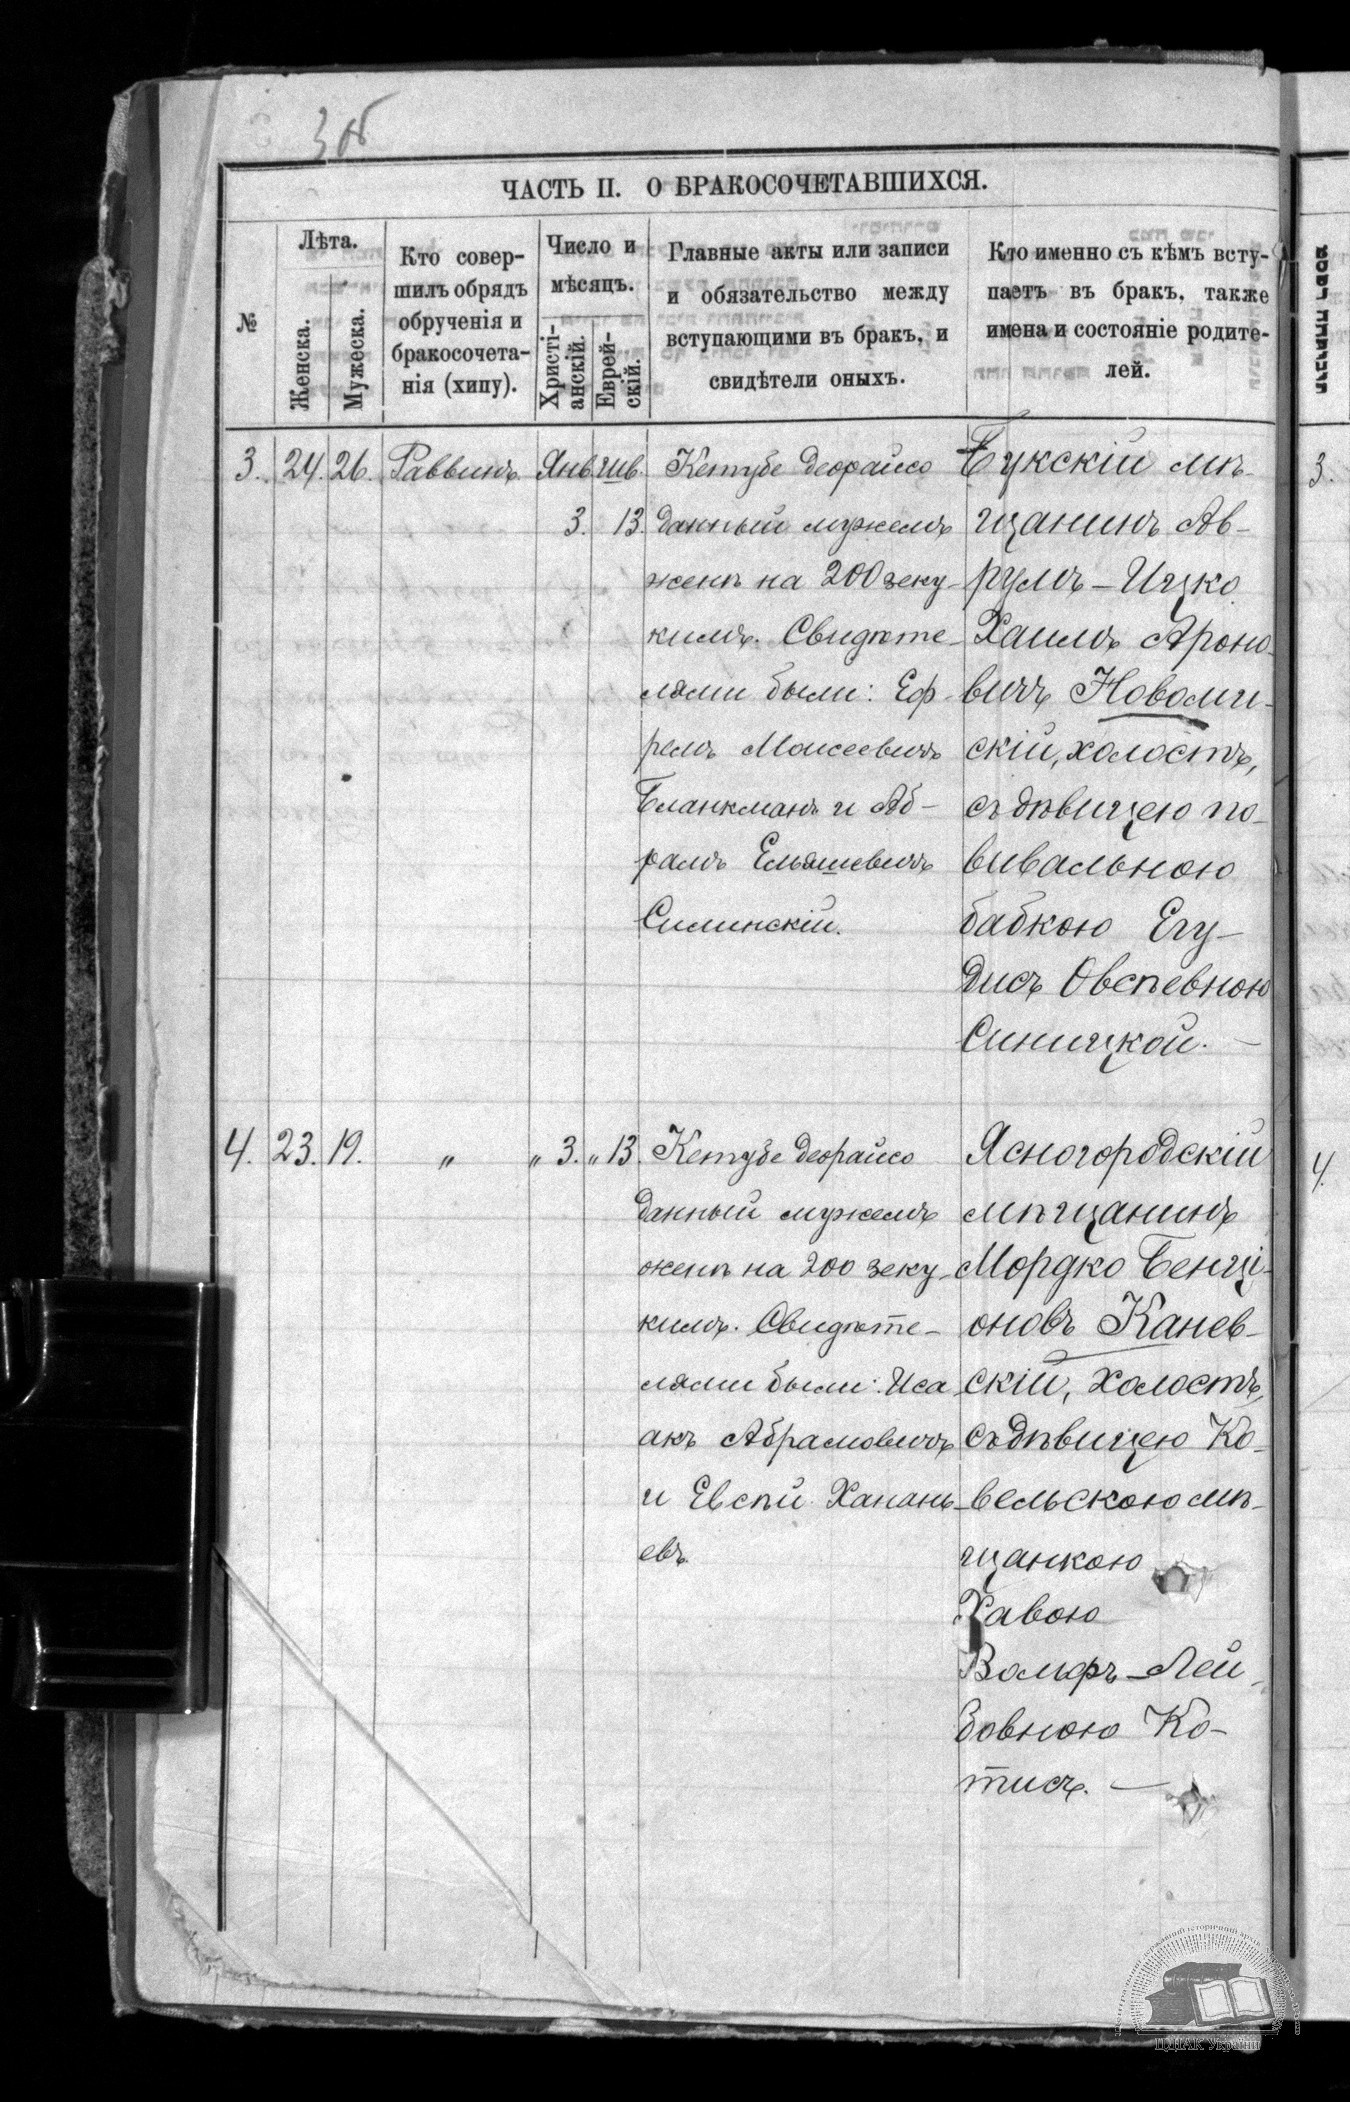 3об
ЧАСТЬ II. О БРАКОСОЧЕТАВШИХСЯ.
№
Лѣта.
Женска.
Мужеска.
Кто совер-
шилъ обрядъ
обрученія и
бракосочета-
нія (хипу).
Число и
мѣсяцъ.
Христі-
анскій.
Еврей-
скій.
Главные акты или записи
и обязательство между
вступающими въ бракъ, и
свидѣтели оныхъ.
Кто именно съ кѣмъ всту-
паетъ въ бракъ, также
имена и состояніе родите-
лей.
3. 24. 26. Раввинъ Янв. Шв.
3. 13.
Кетубе деорайсо
данный мужемъ
женѣ на 200 зеку-
кимъ. Свидѣте-
лями были: Еф-
ремъ Моисеевичъ
Бланкманъ и Аб-
рамъ Ельяшевичъ
Силинскій.
Букскій мѣ-
щанинъ Ав-
румъ-Ицко
Хаимъ Ароно-
вичъ Новоми-
скій, холостъ,
съ дѣвицею по-
вивальною
бабкою Егу-
дисъ Овсѣевною
Синицкой. —
4. 23. 19. „ „ 3. „ 13.
Кетубе деорайсо
данный мужемъ
женѣ на 200 зеку-
кимъ. Свидѣте-
лями были: Иса
акъ Абрамовичъ
и Евсѣй Ханань-
евъ.
Ясногородскій
мѣщанинъ
Мордко Бенці-
оновъ Канев-
скій, холостъ,
съ дѣвицею Ко-
вельскою мѣ-
щанкою
Хавою
Вольфъ-Лей-
бовною Ко-
тисъ. —
3.
4.
ЦДІАК України